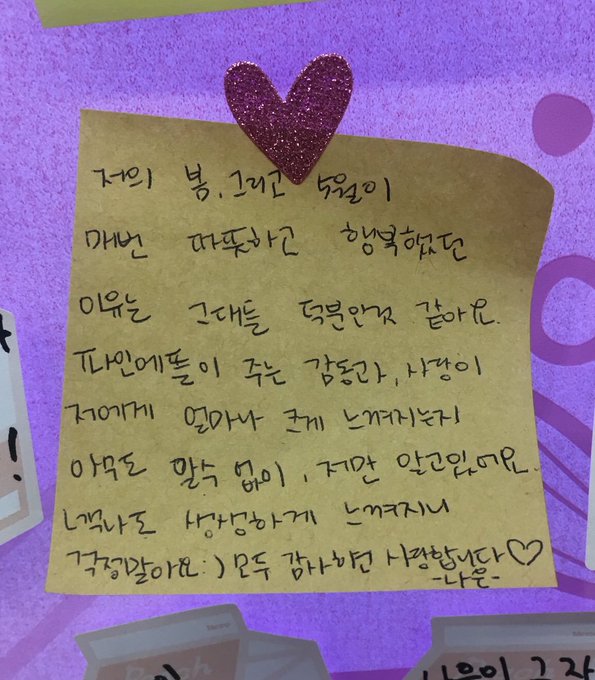 저의 봄, 그리고 5월이
매번 따뜻하고 행복했던
이유는 그대들 덕분인것 같아요.
파인에플이 주는 감동과, 사랑이
저에게 얼마나 크게 느껴지는지
아무도 알수 없이, 저만 알고있어요.
너무나도 생생하게 느껴지니
걱정말아요:) 모두 감사하면 사랑합니다♡
-나은-
!
나은이